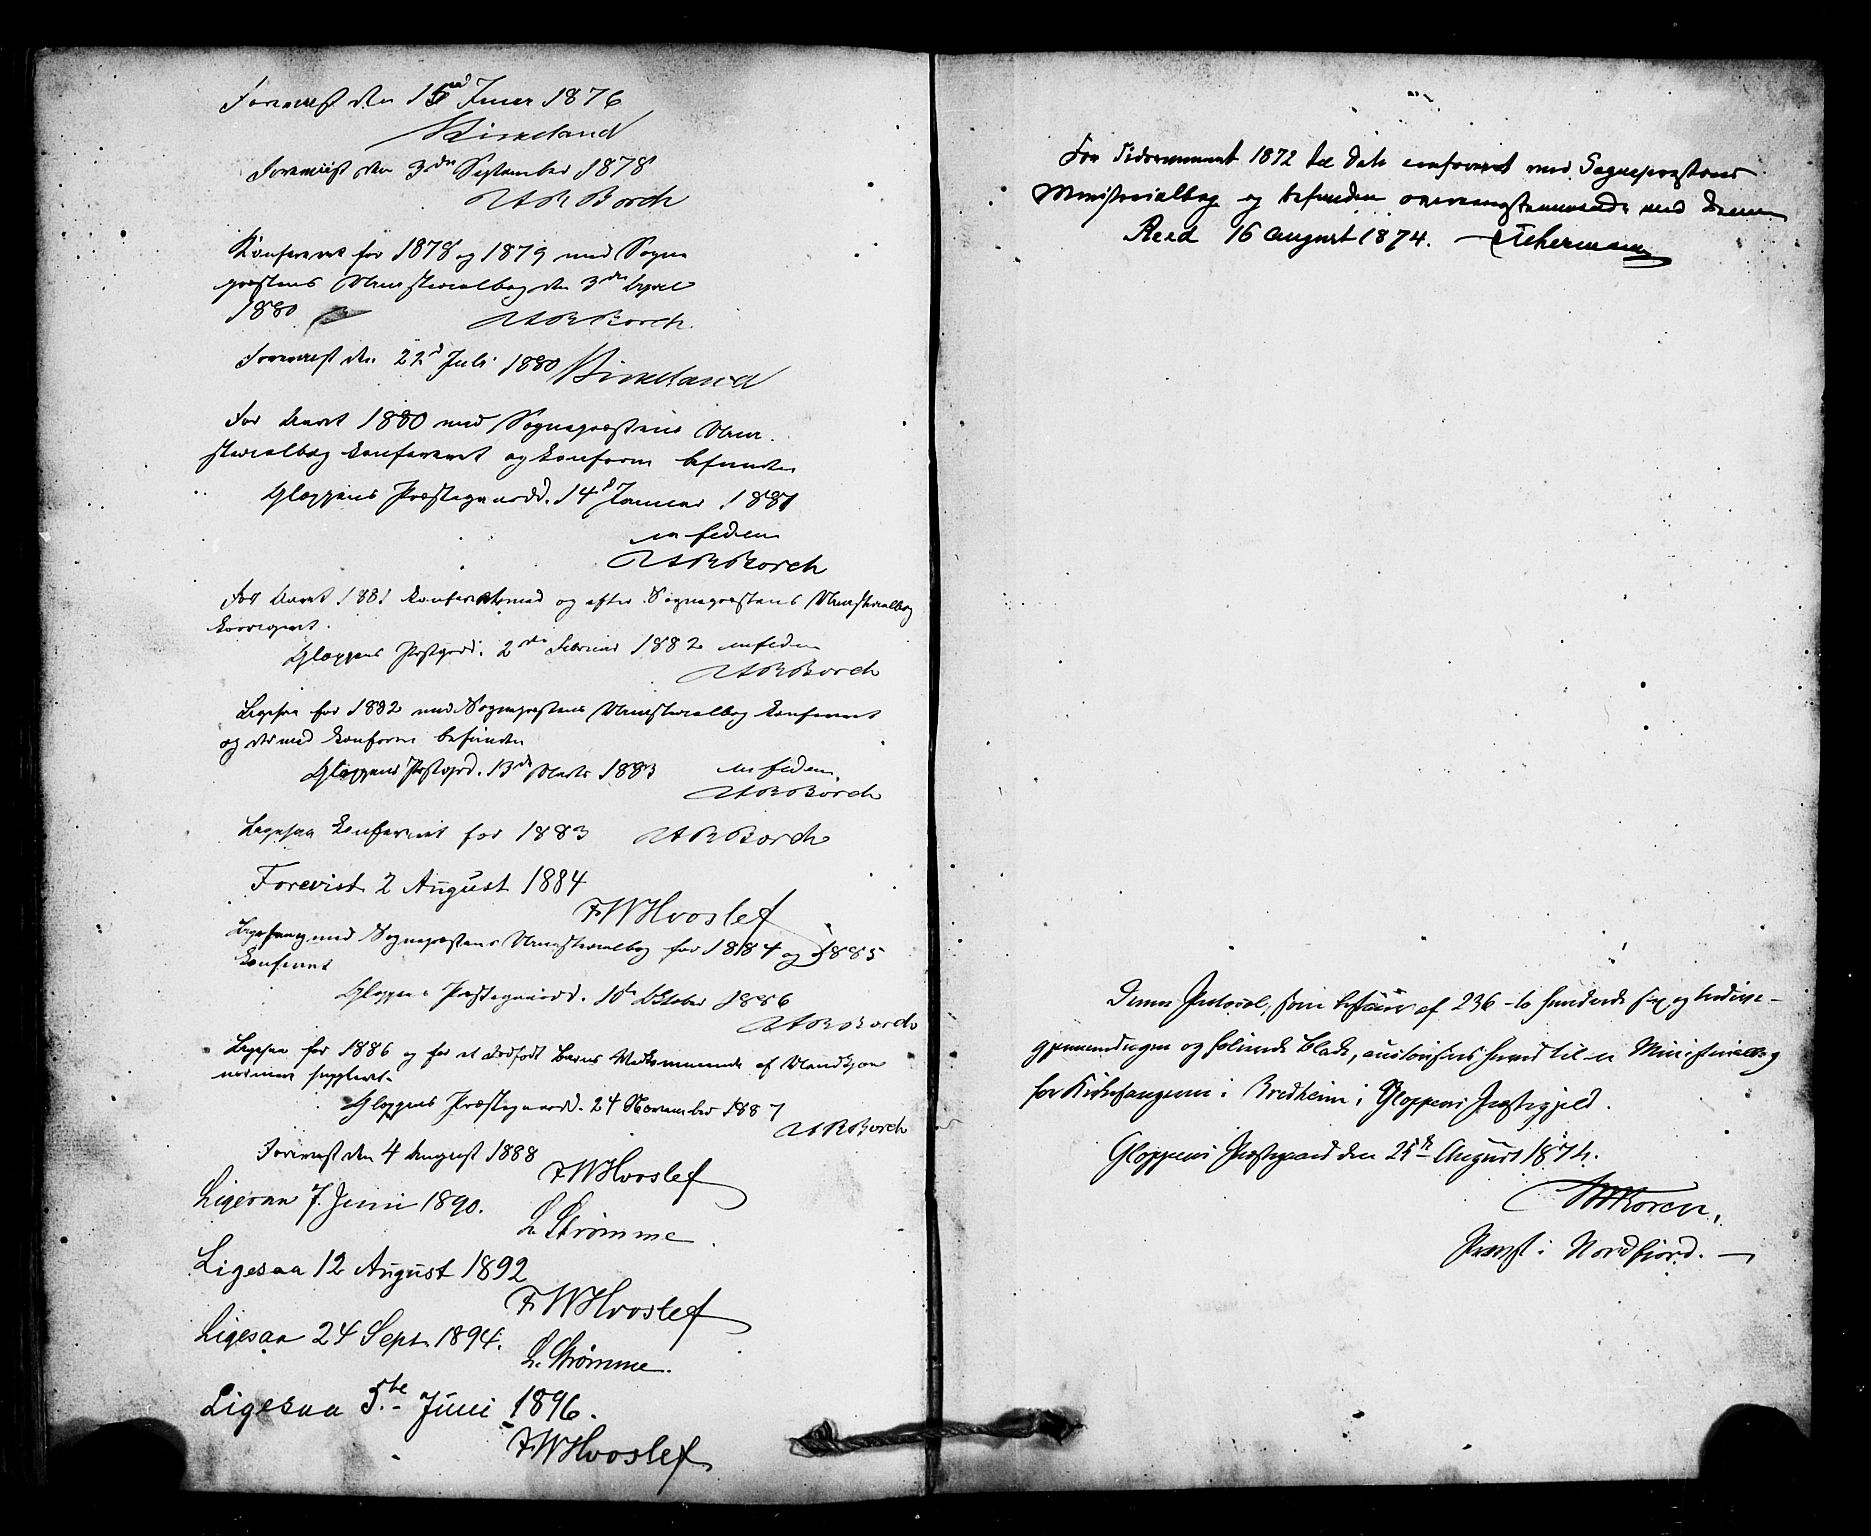 Forevist den 15de Juni 1876
Birkeland
Forevist den 3die September 1878
HABBorch
Konfereret for 1878 og 1879 med Sogne
præstens Ministerialbog den 3die April
1880. HABBorch.
Forevist den 22d Juli 1880 Birkeland
For Aaret 1880 med Sognepræstens Mini-
sterialbog konfereret og konform befunden
Gloppens Præstegaard. 14d Januar 1881
in fidem
HABBorch
For Aaret 1881 konfereret med og efter Sognepræstens Ministerialbog
korrigeret.
Gloppens Præstgrd. 2den Februar 1882 in fidem
HABBorch
Ligesaa for 1882 med Sognepræstens Ministerialbog konfereret
og dermed konform befunden
Gloppens Præstgrd. 13de Marts 1883 in fidem.
HABBorch
Ligesaa konfereret for 1883 HABBorch
Forevist 2 August 1884
FWHvoslef
med Sognepræstens Ministerialbog for 1884 og 1885
konfereret
Gloppens Præstegaard. 1ste Oktober 1886
HABBorch
Ligesaa for 1886 og for et dødfødt Barns Vedkommende af Mandkjøn
suppleret.
Gloppens Præstegaard. 24 November 1887
HABBorch
Forevist den 4 August 1888
FWHvoslef
Ligesaa 7. Juni 1890.
L. Strømme.
Ligesaa 12 August 1892
FWHvoslef
Ligesaa 24 Sept. 1894.
L. Strømme.
Ligesaa 5te Juni 1896.
FWHvoslef
For Tidsrummet 1872 til Dato confereret med Sognepræstens
Ministerialbog og befunden overensstemmende med denne
Reed 16 August 1874.
Denne Protocol, som bestaaer af 236 - to hundrede sex og tredive -
gjennemdragne og folierede Blade, autoriseres herved til en Ministerialbog
for Kirkesangeren i Bredheim i Gloppens Præstegjeld.
Gloppens Præstegaard den 25de August 1874.
Koren,
Provst i Nordfjord. -